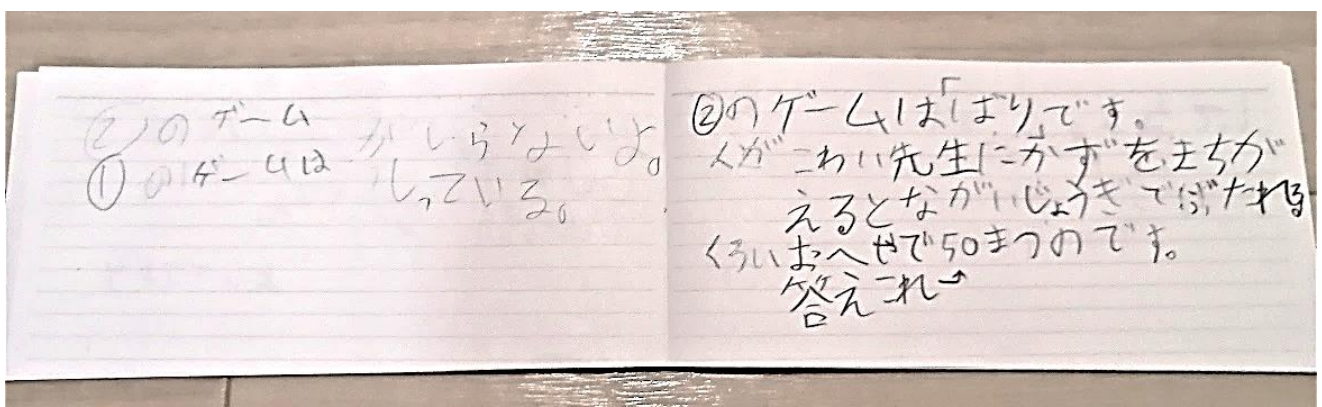 ②のゲームがしらないよ。
①のゲームはしっている。
②のゲームは「ばり」です。
人がこわい先生にかずをまちが
えるとながいじょうぎでぶたれる
くろいおへやで50まつのです。
答えこれ